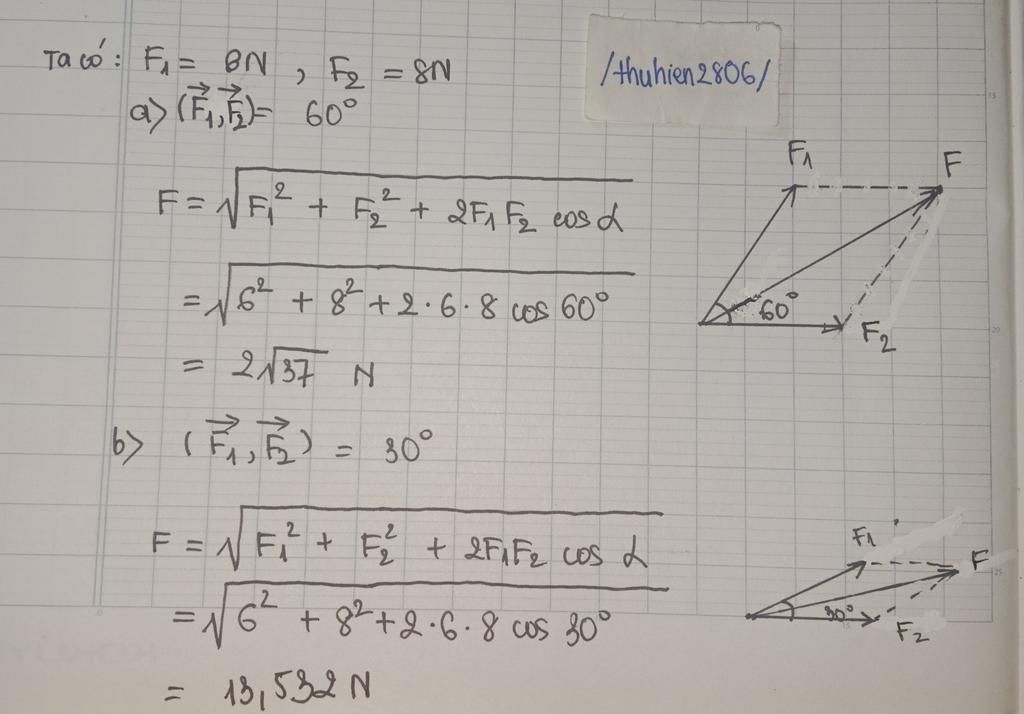 Ta có: F₁ = 6N , F₂ = 8N
/thuhien2806/
a> (F₁⃗, F₂⃗) = 60°
F = √(F₁² + F₂² + 2F₁F₂ cos α)
= √(6² + 8² + 2·6·8 cos 60°)
= 2√37 N
F₁
F
60°
F₂
b> (F₁⃗, F₂⃗) = 30°
F = √(F₁² + F₂² + 2F₁F₂ cos α)
= √(6² + 8² + 2·6·8 cos 30°)
= 13,532 N
F₁
F
30°
F₂